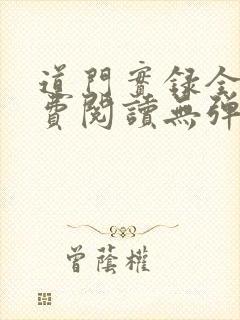 道門實録全
費閱讀無彈
曾蔭權